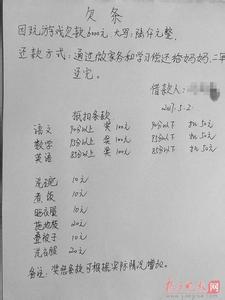 欠条
因玩游戏欠款6000元,大写:陆仟元整,
还款方式:通过做家务和学习偿还给奶奶,二年
还完。
借款人:
2017.5.21
抵扣条款
语文 90分以上 奖100元 90分以下 扣50元
数学 95分以上 奖100元 85分以下 扣50元
英语 85分以上 奖100元 85分以下 扣50元
洗碗 10元
煮饭 10元
晒衣服 10元
拖地板 20元
叠被子 10元
洗衣服 20元
备注:奖惩条款可根据实际情况增加。